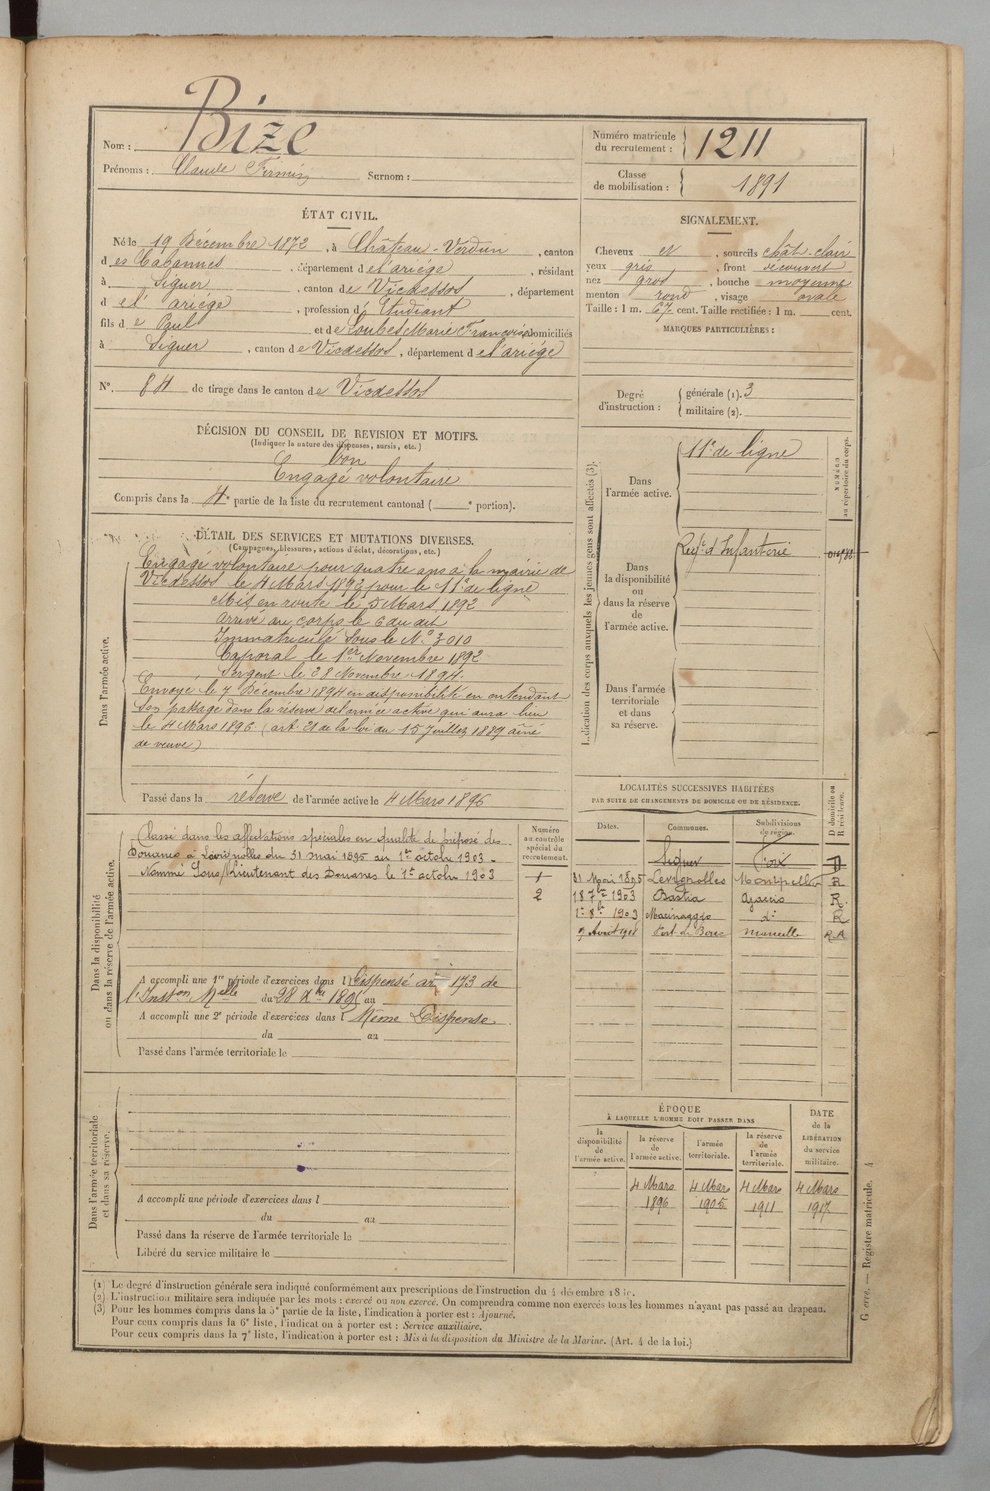 Nom : Bize
Prénoms : Claude Firmin Surnom :
Numéro matricule du recrutement : 1211
Classe de mobilisation : 1891
ÉTAT CIVIL.
Né le 19 Décembre 1872, à Château-Verdun, canton
des Cabannes, département de l'ariége, résidant
à Siguer, canton de Vicdessos, département
de l'ariége, profession d'Etudiant
fils de Paul et de Loubes Marie Françoise domiciliés
à Siguer, canton de Vicdessos, département de l'ariége
N° 84 de tirage dans le canton de Vicdessos
SIGNALEMENT.
Cheveux et, sourcils chât-clair
yeux gris, front découvert
nez gros, bouche moyenne
menton rond, visage ovale
Taille : 1 m. 67 cent. Taille rectifiée : 1 m. cent.
MARQUES PARTICULIÈRES :
Degré d'instruction : générale (1). 3
militaire (2).
DÉCISION DU CONSEIL DE REVISION ET MOTIFS.
(Indiquer la nature des dispenses, sursis, etc.)
bon
Engagé volontaire
Compris dans la 4e partie de la liste du recrutement cantonal ( e portion).
Indication des corps auxquels les jeunes gens sont affectés (3).
NUMÉRO au répertoire du corps.
Dans l'armée active. 11e de ligne
Dans la disponibilité ou dans la réserve de l'armée active. d'Infanterie
Dans l'armée territoriale et dans sa réserve.
DÉTAIL DES SERVICES ET MUTATIONS DIVERSES.
(Campagnes, blessures, actions d'éclat, décorations, etc.)
Dans l'armée active.
Engagé volontaire pour quatre ans à la mairie de
Vicdessos le 4 Mars 1892 pour le 11e de ligne
Mis en route le 5 Mars 1892
arrivé au corps le 6 au dit
Immatriculé sous le N° 3010
Caporal le 1er Novembre 1892
Sergent le 28 Novembre 1894.
Envoyé le 7 Décembre 1894 en disponibilité en attendant
son passage dans la réserve de l'armée active qui aura lieu
le 4 Mars 1896 (art. 21 de la loi du 15 Juillet 1889 aîné
de veuve)
Passé dans la réserve de l'armée active le 4 Mars 1896
Dans la disponibilité ou dans la réserve de l'armée active.
Numéro au contrôle spécial du recrutement.
Classé dans les affectations spéciales en qualité de préposé des
Douanes à Lévignolles du 31 mai 1895 au 1er octobre 1903 - 1
Nommé Sous/Lieutenant des Douanes le 1er octobre 1903 2
A accompli une 1re période d'exercices dans l Dispensé art 173 de
l'Inston Melle du 28 Xbre 1895 au
A accompli une 2e période d'exercices dans l Même Dispense
du au
Passé dans l'armée territoriale le
LOCALITÉS SUCCESSIVES HABITÉES
PAR SUITE DE CHANGEMENTS DE DOMICILE OU DE RÉSIDENCE.
Dates. Communes. Subdivisions de région. D domicile ou R résidence.
Siguer Foix D
31 Mai 1895 Lévignolles Montpellier R
18 7bre 1903 Bastia Ajaccio R.
1er 8bre 1903 Macinaggio do R
Port de Bouc Marseille RA
Dans l'armée territoriale et dans sa réserve.
A accompli une période d'exercices dans l
du au
Passé dans la réserve de l'armée territoriale le
Libéré du service militaire le
ÉPOQUE
À LAQUELLE L'HOMME DOIT PASSER DANS
DATE de la LIBÉRATION du service militaire.
la disponibilité de l'armée active. la réserve de l'armée active. l'armée territoriale. la réserve de l'armée territoriale.
4 Mars 4 Mars 4 Mars 4 Mars
1896 1905 1911 1917
(1) Le degré d'instruction générale sera indiqué conformément aux prescriptions de l'instruction du 4 décembre
(2) L'instruction militaire sera indiquée par les mots : exercé ou non exercé. On comprendra comme non exercés tous les hommes n'ayant pas passé au drapeau.
(3) Pour les hommes compris dans la 5e partie de la liste, l'indication à porter est : Ajourné.
Pour ceux compris dans la 6e liste, l'indication à porter est : Service auxiliaire.
Pour ceux compris dans la 7e liste, l'indication à porter est : Mis à la disposition du Ministre de la Marine. (Art. 4 de la loi.)
Guerre. — Registre matricule. 4